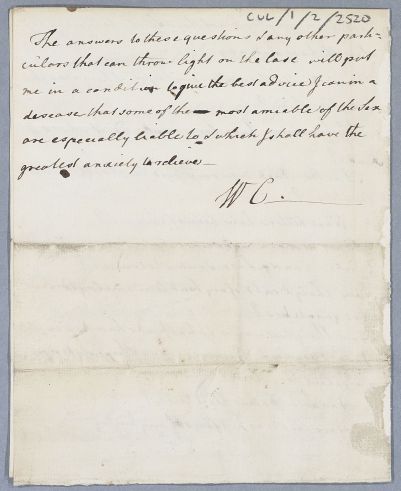 CUL/1/2/2520
The answers to these questions & any other parti-
culars that can throw light on the case will put
me in a condition to give the best advice I can in a
desease that some of the most amiable of the Sex
are especially liable to & which I shall have the
greatest anxiety to relieve—
W C.